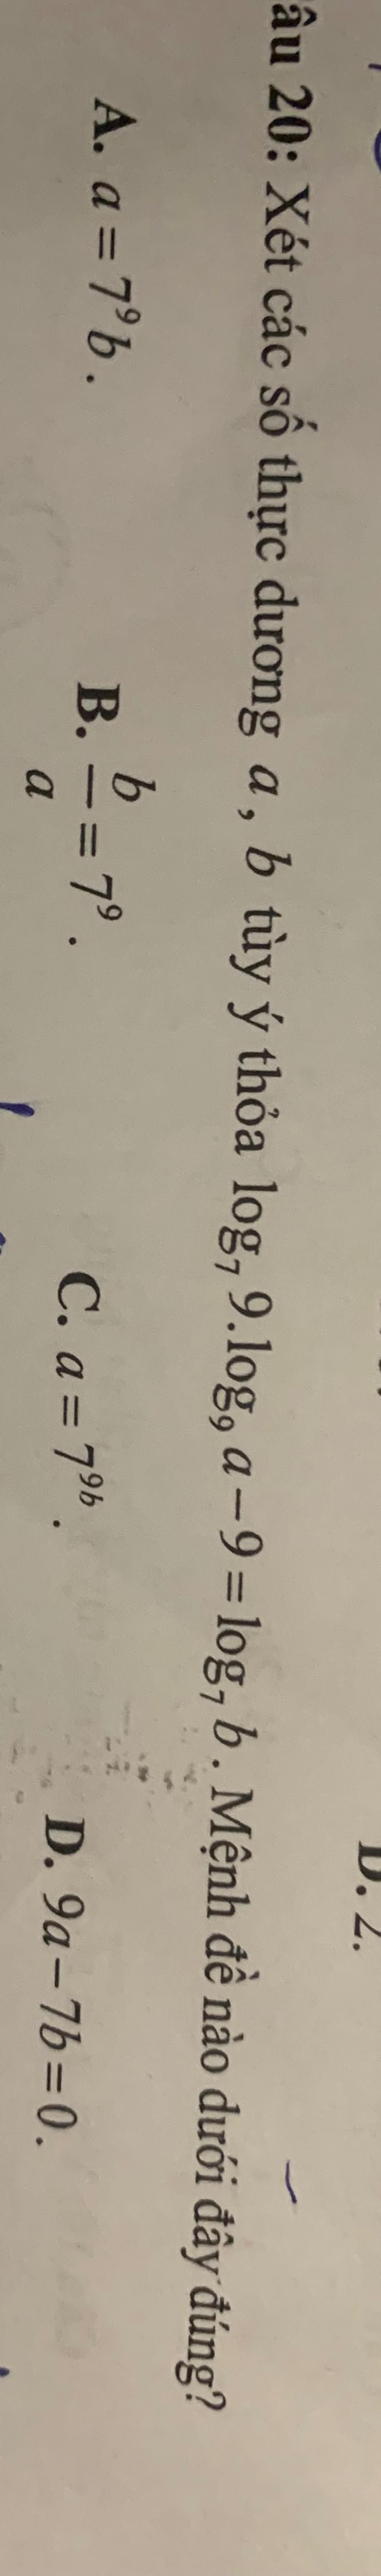 D. 2.
âu 20: Xét các số thực dương a, b tùy ý thỏa log₇ 9.log₉ a − 9 = log₇ b. Mệnh đề nào dưới đây đúng?
A. a = 7⁹b. B. b/a = 7⁹. C. a = 7⁹ᵇ. D. 9a − 7b = 0.